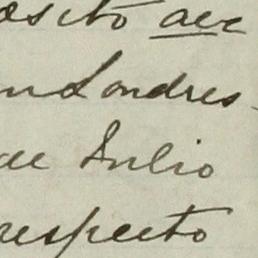 osito ace
en Londres
de Julio
respecto